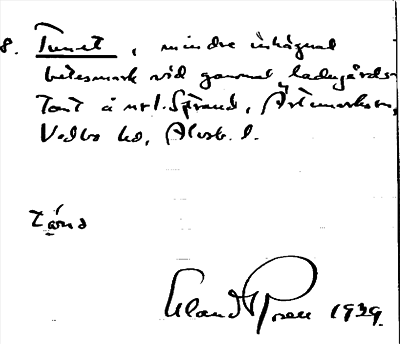 8. Tunet, mindre inhägnad
betesmark vid gammal ladugårds-
tomt å nr 1. Strand, Ärtemarks sn,
Vedbo hd, Älvsb. l.
1939.